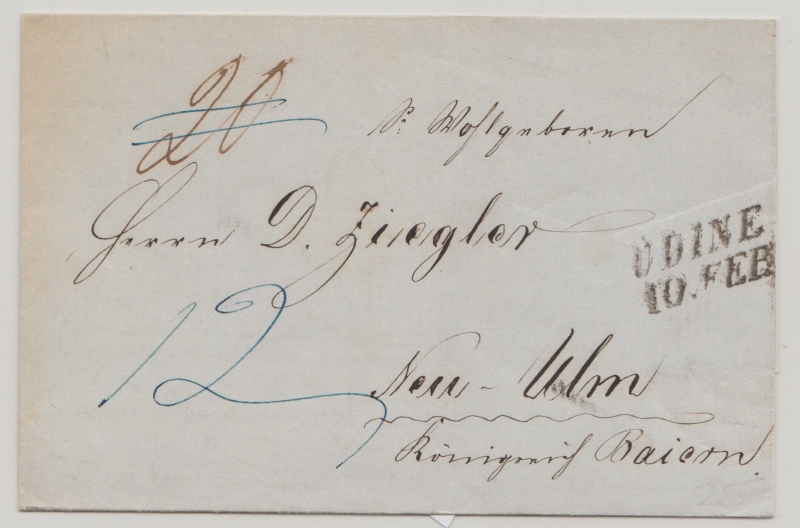 20
Sr Wohlgeboren
Herrn D. Ziegler
UDINE
10. FEB
12
Neu-Ulm
Königreich Baiern.